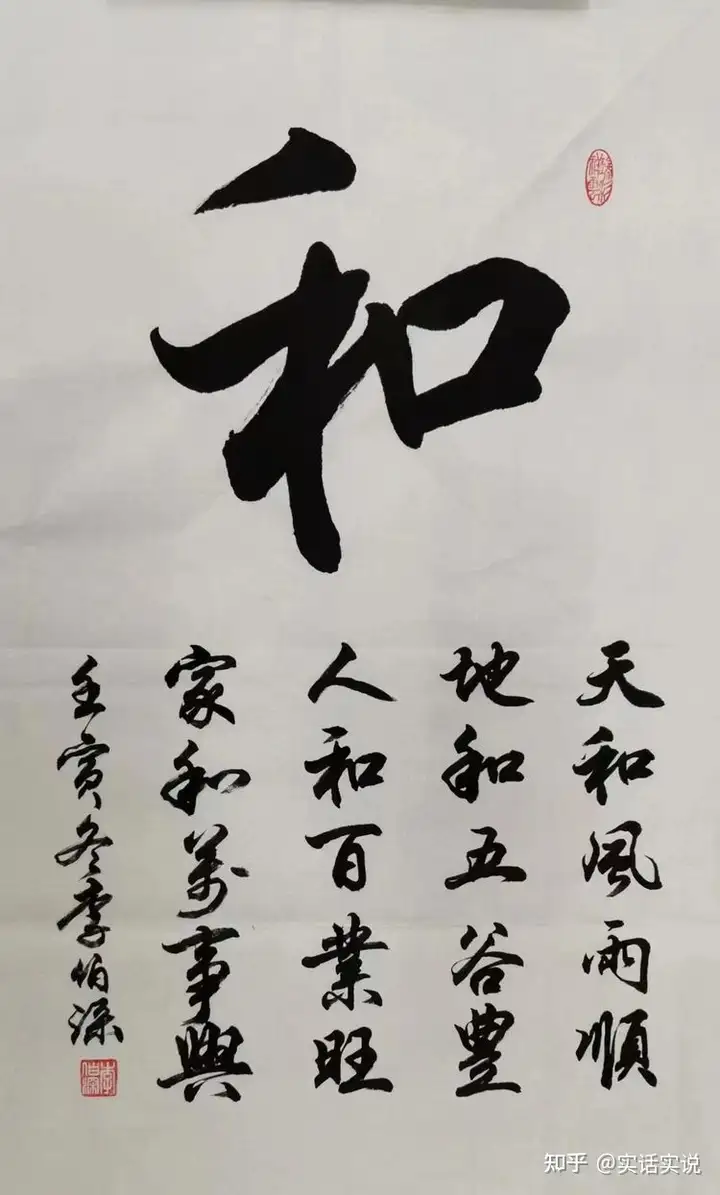 和
天和風雨順
地和五谷豐
人和百業旺
家和萬事興
壬寅冬李伯深
知乎 @实话实说